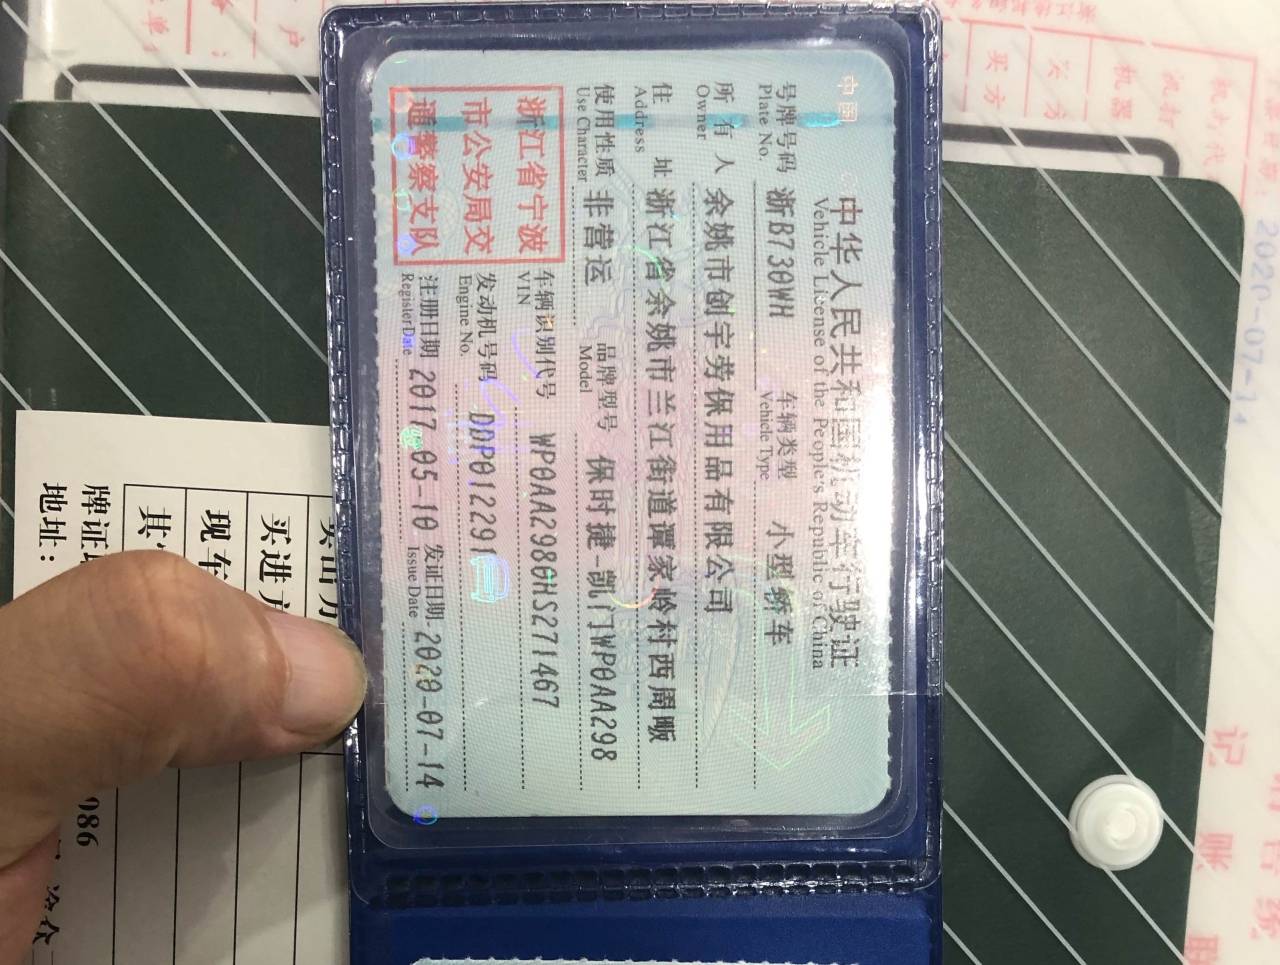 中国
中华人民共和国机动车行驶证
Vehicle License of the People's Republic of China
号牌号码 浙B730WH 车辆类型 小型轿车
Plate No. Vehicle Type
所有人 余姚市创宇劳保用品有限公司
Owner
住址 浙江省余姚市兰江街道谭家岭村西周畈
Address
使用性质 非营运 品牌型号 保时捷-凯门WP0AA298
Use Character Model
浙江省宁波
市公安局交
通警察支队
车辆识别代号 WP0AA2980HS271467
VIN
发动机号码 DDP012291
Engine No.
注册日期 2017-05-10 发证日期 2020-07-14
Register Date Issue Date
买进方
现车
其
牌证
地址：
086
2020-07-14
机器
买方